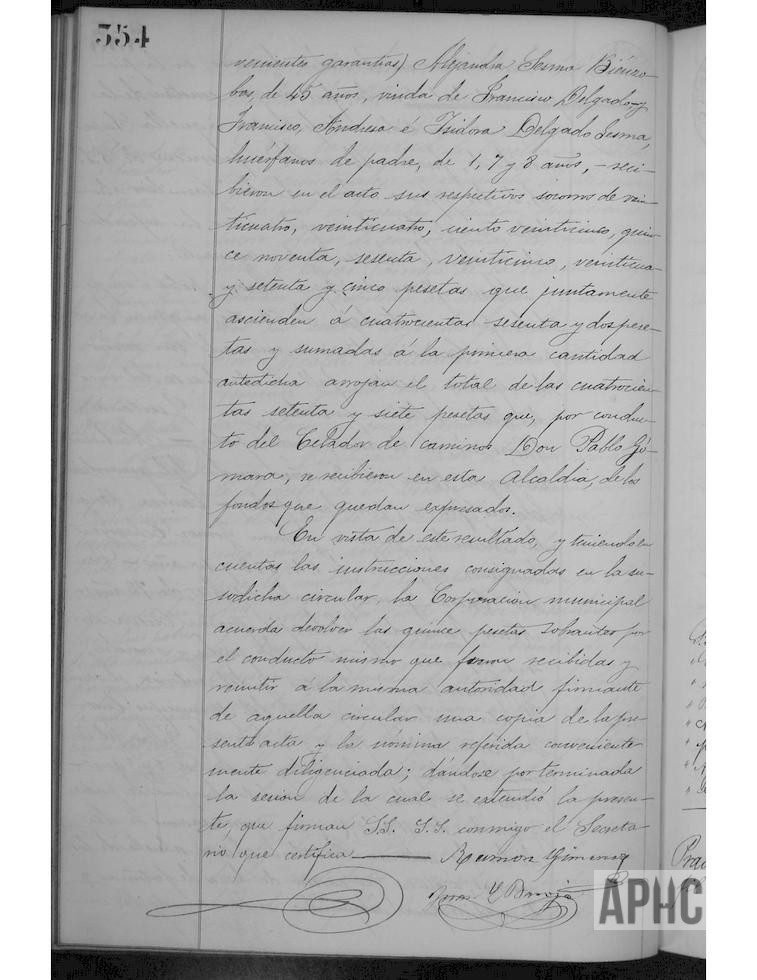 354
venientes garantias) Alejandra Sesma Bienzo-
bas, de 45 años, viuda de Francisco Delgado y
Francisco, Andresa é Isidora Delgado Sesma,
huérfanos de padre, de 1, 7 y 8 años, - reci-
bieron en el acto sus respectivos socorros de vein-
ticuatro, veinticuatro, ciento veinticinco, quin-
ce noventa, sesenta, veinticinco, veinticua-
y setenta y cinco pesetas que juntamente
ascienden á cuatrocientas sesenta y dos pese-
tas y sumadas á la primera cantidad
antedicha arrojan el total de las cuatrocien-
tas setenta y siete pesetas que, por conduc-
to del Celador de caminos Don Pablo Gó-
mara, se recibieron en esta Alcaldia, de los
fondos que quedan expresados.
En vista de este resultado, y teniendo en
cuenta las instrucciones consignadas en la su-
sodicha circular, la Corporacion municipal
acuerda devolver las quince pesetas sobrantes por
el conducto mismo que fueron recibidas y
remitir á la misma autoridad firmante
de aquella circular una copia de la pre-
sente acta y la nómina referida conveniente-
mente diligenciada; dándose por terminada
la sesion de la cual se extendió la presen-
te, que firman SS. SS. conmigo el Secreta-
rio que certifica Ramon Gimenez
APHC